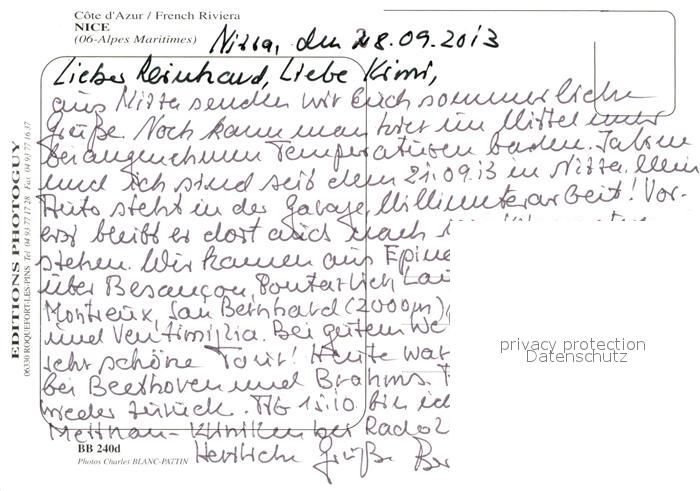 Côte d'Azur / French Riviera
NICE
(06-Alpes Maritimes)
Nizza, den 28.09.2013
Lieber Reinhard, Liebe Kimi,
aus Nizza senden wir Euch sommerliche
Grüße. Noch kann man hier im Mittelmeer
bei angenehmen Temperaturen baden.
und ich sind seit dem 21.09.13 in Nizza. Mein
Auto steht in der Garage, Millimeterarbeit! Vor-
erst bleibt er dort auch nach
stehen. Wir kamen aus
über Besançon, Pontarlier,
Montreux, San Bernhard (2000m),
und Ventimiglia. Bei gutem
sehr schöne Tour! Heute war
bei Beethoven und Brahms.
wieder zurück. Ab 15.10 bin
Mettnau-Kliniken bei
Herzliche Grüße
EDITIONS PHOTOGUY
06330 ROQUEFORT-LES-PINS Tel 04 93 77 17 28 Fax 04 93 77 16 37
BB 240d
Photos Charles BLANC-PATTIN
privacy protection
Datenschutz